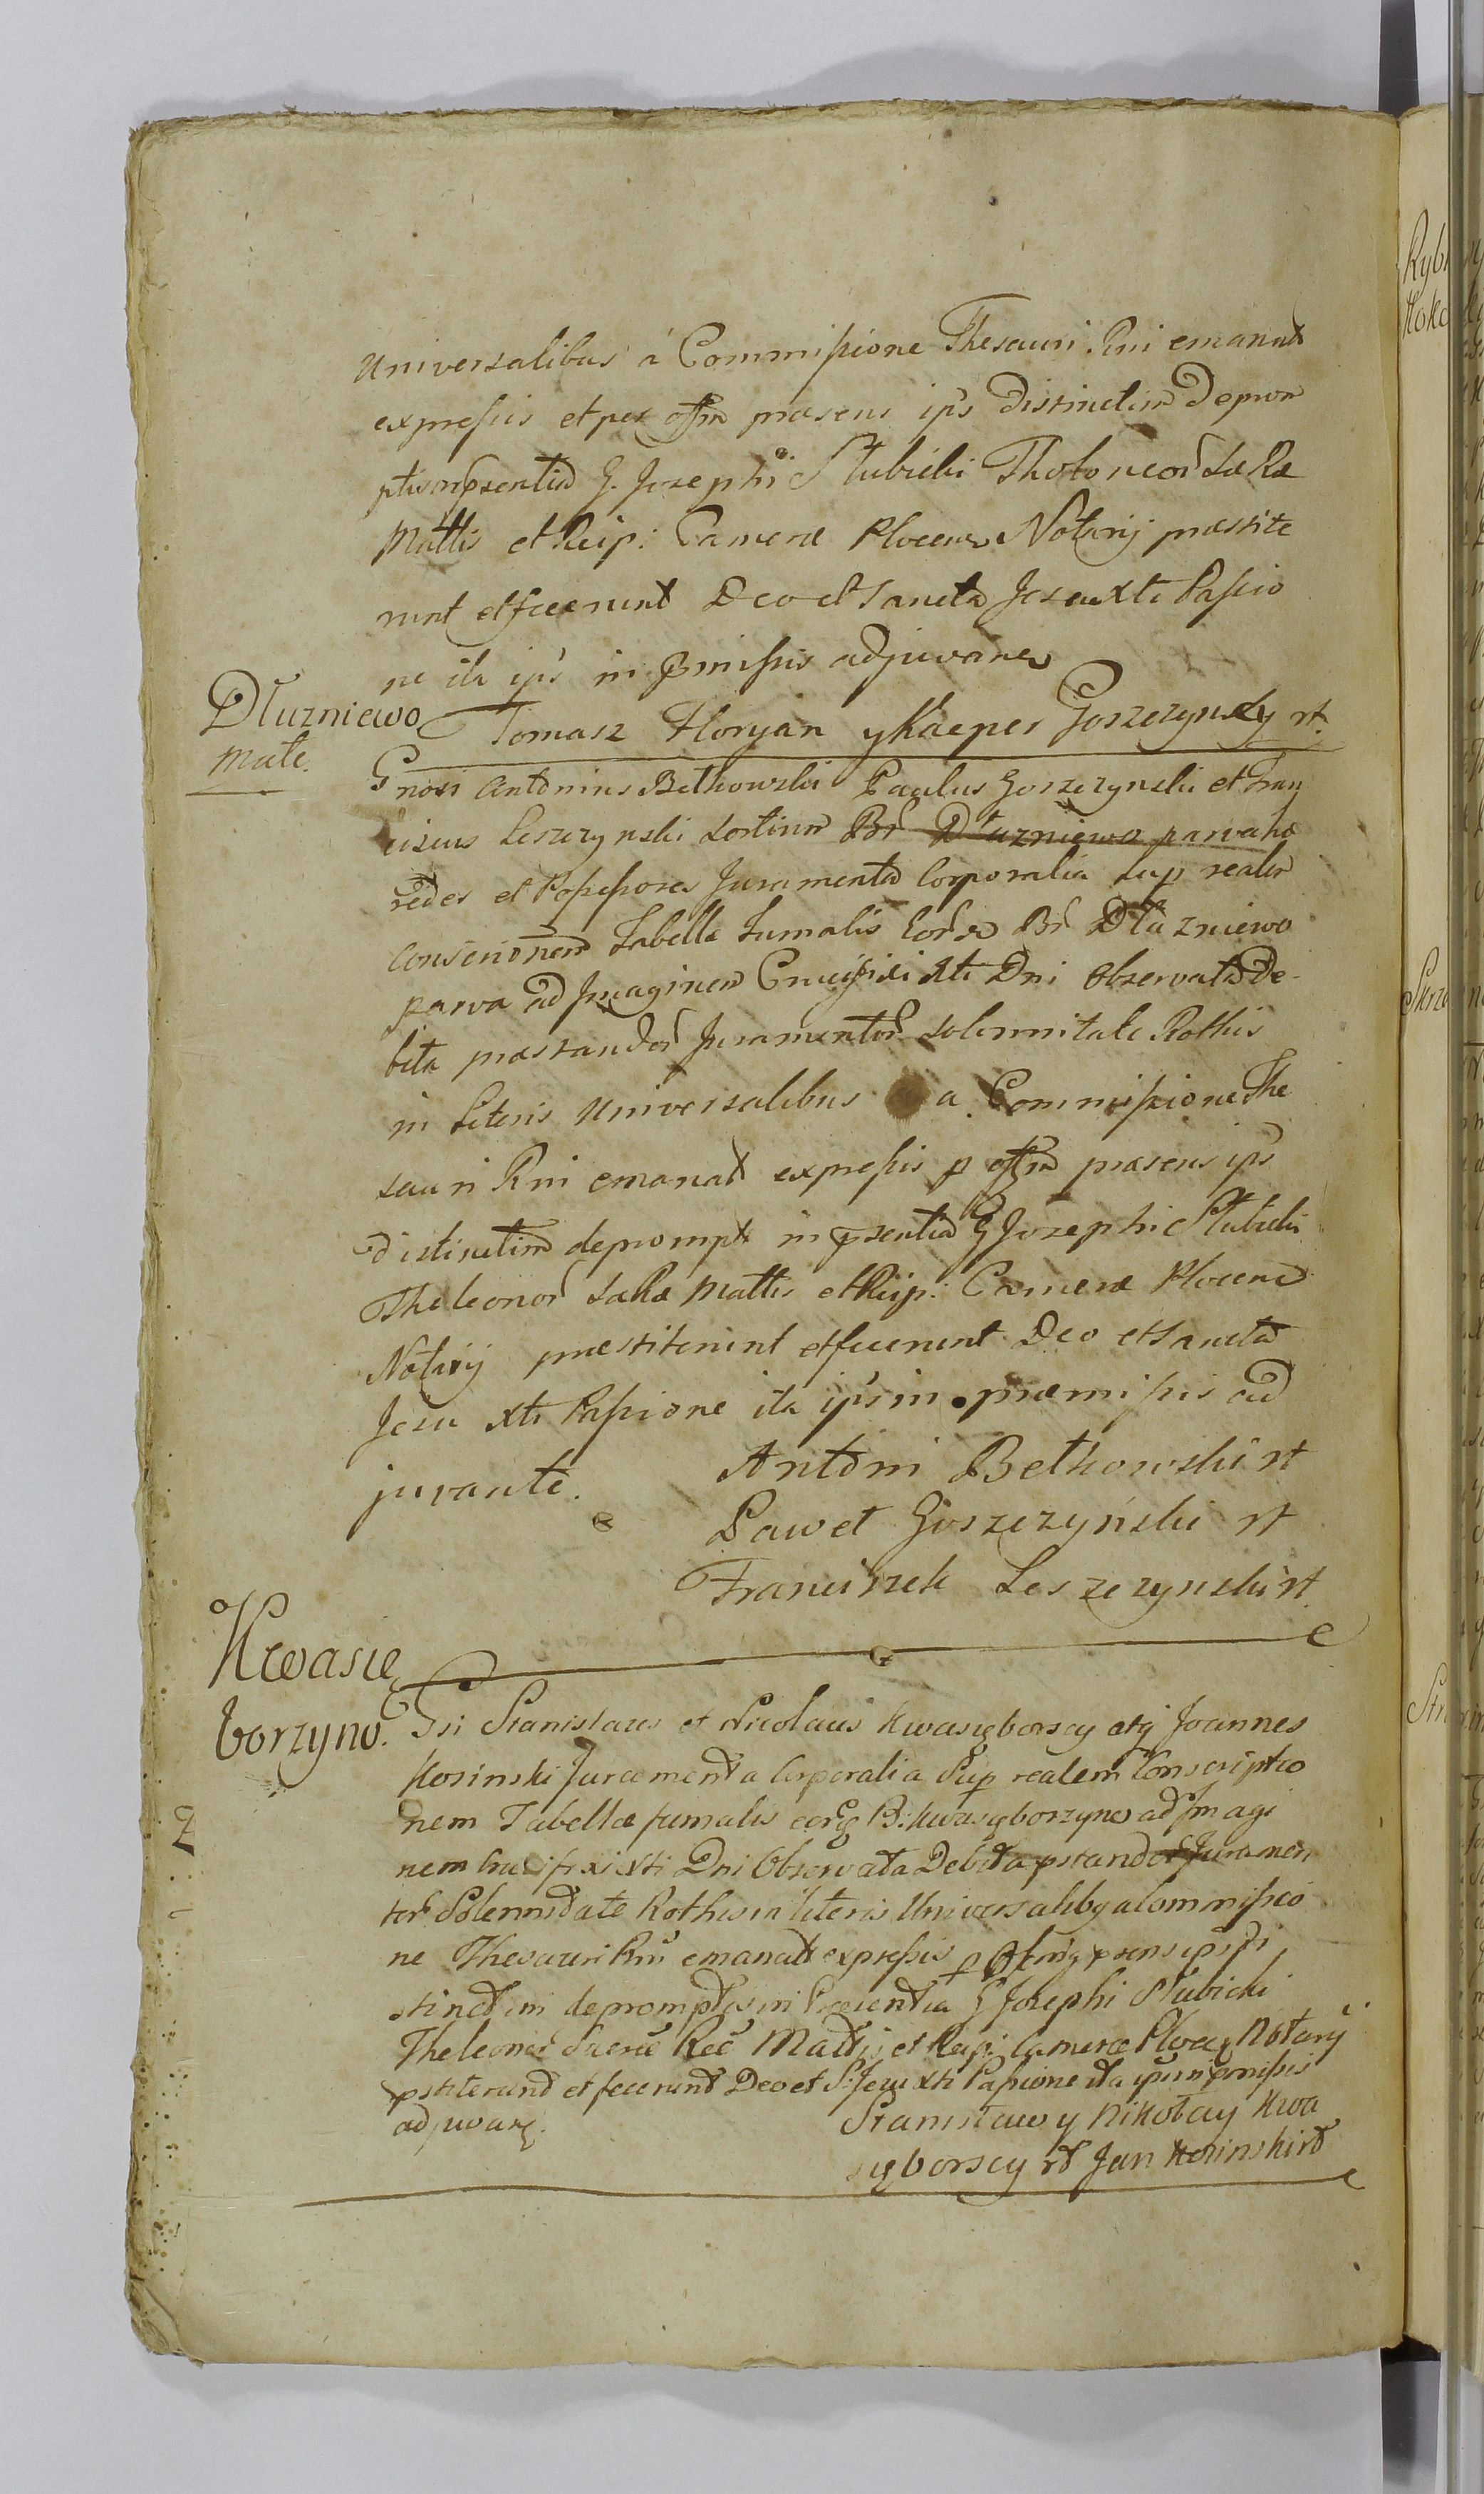 Universalibus á Commissione Thesauri Rni emanat
expressis et per offm praesens ips Distinctim Depron
ptis in psentia G. Josephi Słubicki Theloneor SaRæ
Mattis et Reip: Cameræ Plocen Notarij præstite
runt et fecerunt Deo et Sancta Jesu Xti Passio
ne ita ips in pmissis adjuvane
Dłuzniewo
Małe.
Tomasz Floryan y Kacper Goszczynscy rt.
Gnosi Antonius Betkowski Paulus Goszczynski et Fran
ciscus Leszczynski Sortium Br Dłuzniewo parva hæ
redes et Possessores Juramenta Corporalia Sup realem
conscriõnem Tabellæ fumalis eor Br Dłuzniewo
parva ad Imaginem Crucifixi Xti Dni Observata De-
bita præstandor Juramentor Solemnitate Rothis
in Literis Universalibus a Commissione The
sauri Rni emanat expressis p offm præsens ips
distinctim deprompt in psentia G Josephi Słubicki
Theleonor SaRæ Mattis et Reip: Cameræ Plocen
Notarij præstiterunt et fecerunt Deo et Sancta
Jesu Xti Passione ita ips in præmissis ad
juvante.
Antoni Betkowski rt
Paweł Goszczyński rt
Franciszek Leszczynski rt
Kwasię
borzyno.
Gsi Stanislaus et Nicolaus Kwasięborscy atq Joannes
Kosinski Juramenta Corporalia Sup realem Conscriptio
nem Tabellæ fumalis eorq B: Kwasięborzyno ad Imagi
nem Crucifixi Xti Dni Observata Debita pstandor Juramen
tor Solennitate Rothis in literis Universalibq a Commissio
ne Thesauri Rni emanat expressis p Offm psens ips di
stinctim depromptis in Praesentia G Josephi Słubicki
Theleoner Sacræ Reæ Mattis et Reip: Cameræ Plocen Notarij
pstiterunt et fecerunt Deo et S: Jesu Xti Passione ita ips in pmissis
adjuvan.
Stanisław y Nikołay Kwa
sięborscy rt Jan Kosinski rt